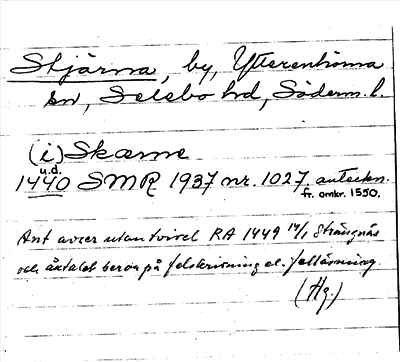 Stjärna, by, Ytterenhörna
sn, Selebo hd, Söderm. l.
(i) Skærne
u.d.
1440 SMR 1937 nr. 1027. anteckn.
fr. omkr. 1550.
Ant avser utan tvivel RA 1449 14/1 Strängnäs
och årtalet beror på felskrivning el. felläsning.
(Hg.)